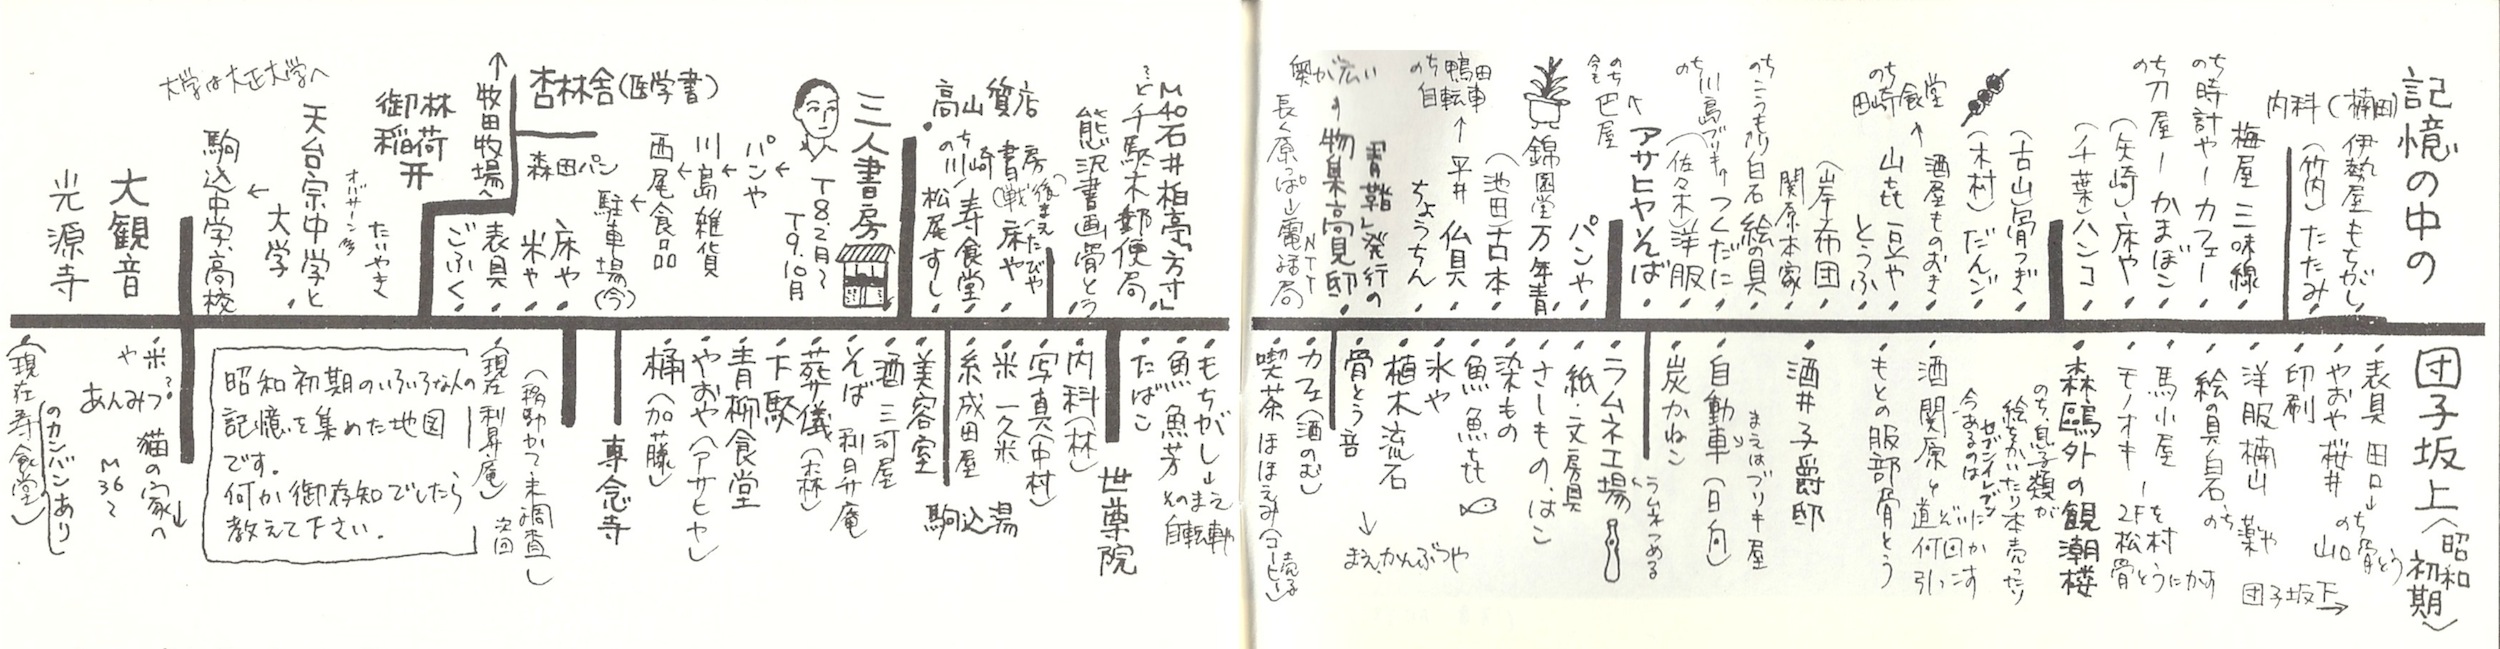 記憶の中の
団子坂上(昭和初期)
内科(楠田)
伊勢屋もちがし
(竹内)たたみ
梅屋三味線
のち時計やーカフェー
のち刀屋ーかまぼこ
(矢崎)床や
(千葉)ハンコ
(古山)骨つぎ
(木村)だんご
酒屋ものおき
のち田崎食堂
山㐂豆や
とうふ
(岸)布団
関原本家
のちこうもり
白石絵の具
のち川島ブリキ
つくだに
(佐々木)洋服
アサヒヤそば
のち巴屋
今も
パンや
錦園堂万年青
(池田)古本
のち鴨田自転車
平井仏具
ちょうちん
「青鞜」発行の
物集高見邸
奥が広い
長く原っぱ→電話局
NTT
M40石井柏亭「方寸」
千駄木郵便局
熊沢書画骨とう
高山質店
床や
のち川崎
寿食堂
松尾すし
三人書房
T8.2月〜
T9.10月
パンや
川島雑貨
西尾食品
駐車場(今)
杏林舎(医学書)
森田パン
床や
米や
牧田牧場へ
表具
ごふく
御林稲荷
たいやき
オバサーン
天台宗中学と
大学
大学は大正大学へ
駒込中学、高校
大観音
光源寺
表具 田口
のち骨とう
やおや桜井
のち山口
印刷
洋服楠山
のち薬や
団子坂下→
絵の具白石
馬小屋
モノオキ
2F松村
骨とうにかす
森鷗外の観潮楼
のち、息子類が
絵をかいたり本売ったり
セブンイレブン
今あるのは
酒関原
もとの服部骨とう
酒井子爵邸
自動車(日向)
まえはブリキ屋
炭かねこ
ラムネ工場
ラムネつめる
紙・文房具
さしもの、はこ
染もの
魚魚㐂
氷や
植木流石
まえ、かんぶつや
骨とう音
カフェ(酒のむ)
喫茶ほほえみ(コーヒー)
もちがし
そのまえ自転車や
魚魚芳
たばこ
世尊院
内科(林)
写真(中村)
米一久米
駒込湯
糸成田屋
美容室
酒三河屋
そば利日升庵
葬儀(森)
下駄
青柳食堂
やおや(アサヒヤ)
桶(加藤)
専念寺
(現在利昇庵)
(移動かて未調査)
次回
昭和初期のいろいろな人の
記憶を集めた地図
です。
何か御存知でしたら
教えて下さい。
米や
あんみつ?
猫の家へ
M36〜
のカンバンあり
(現在寿食堂)